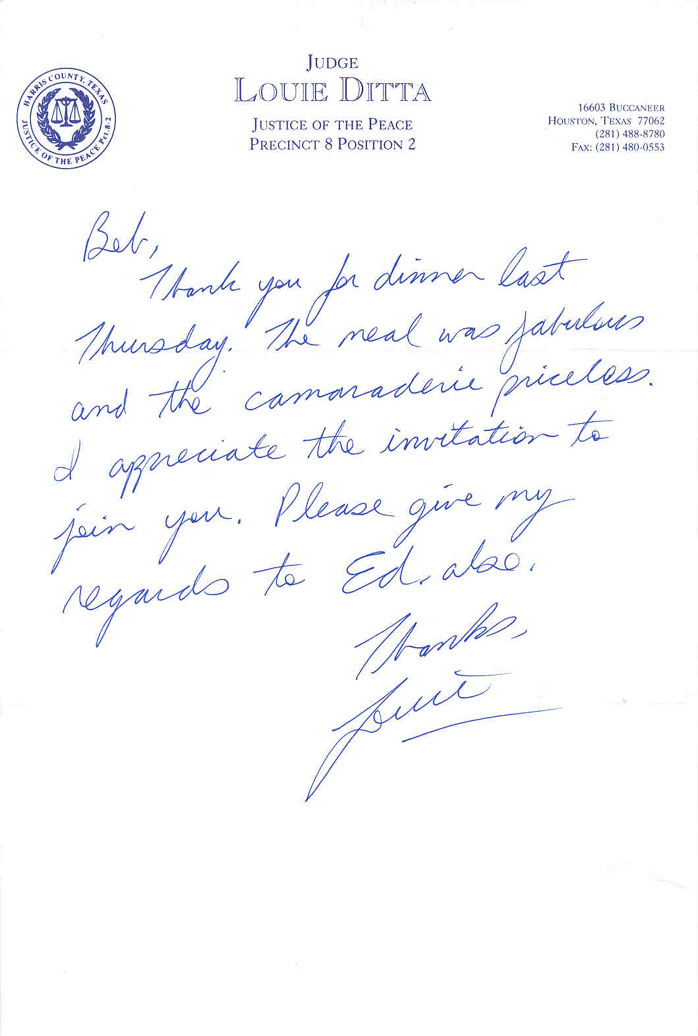 HARRIS COUNTY, TEXAS
JUSTICE OF THE PEACE Pct. 8-2
JUDGE
LOUIE DITTA
JUSTICE OF THE PEACE
PRECINCT 8 POSITION 2
16603 BUCCANEER
HOUSTON, TEXAS 77062
(281) 488-8780
FAX: (281) 480-0553
Bob,
Thank you for dinner last
Thursday. The meal was fabulous
and the camaraderie priceless.
I appreciate the invitation to
join you. Please give my
regards to Ed, also.
Thanks,
Louie